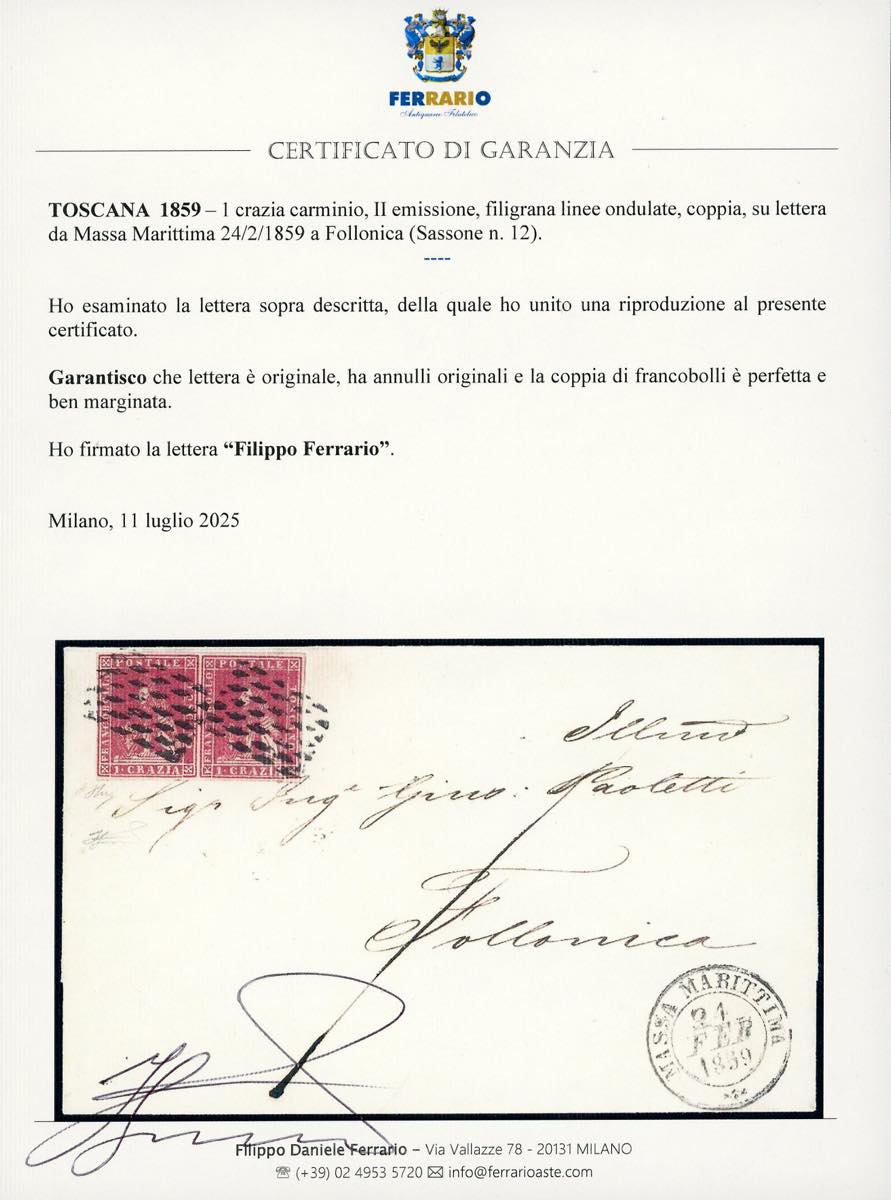 FERRARIO
Antiquariato Filatelico
CERTIFICATO DI GARANZIA
TOSCANA 1859 – 1 crazia carminio, II emissione, filigrana linee ondulate, coppia, su lettera
da Massa Marittima 24/2/1859 a Follonica (Sassone n. 12).
----
Ho esaminato la lettera sopra descritta, della quale ho unito una riproduzione al presente
certificato.
Garantisco che lettera è originale, ha annulli originali e la coppia di francobolli è perfetta e
ben marginata.
Ho firmato la lettera “Filippo Ferrario”.
Milano, 11 luglio 2025
POSTALE POSTALE
1·CRAZIA 1·CRAZI
Sigr Ingre Gino: Paoletti
Follonica
MASSA MARITTIMA
24
FEB
1859
Filippo Daniele Ferrario – Via Vallazze 78 - 20131 MILANO
☎ (+39) 02 4953 5720 ✉ info@ferrarioaste.com